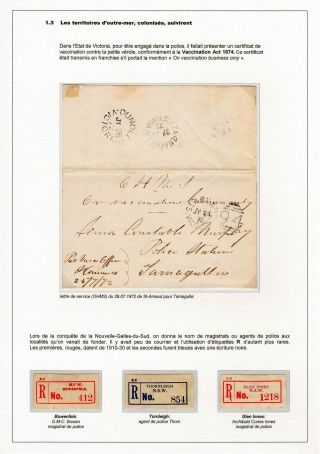 1.3 Les territoires d'outre-mer, colonisés, suivirent
Dans l'Etat de Victoria, pour être engagé dans la police, il fallait présenter un certificat de
vaccination contre la petite vérole, conformément à la Vaccination Act 1874. Ce certificat
était transmis en franchise s'il portait la mention « On vaccination business only ».
DUNOLLY
TARNAGULLA
O H M S
On vaccination business only
Senior Constable Murphy
Police Station
Tarnagulla
26/7/72
lettre de service (OHMS) du 26.07.1872 de St-Arnaud pour Tarnagulla
Lors de la conquête de la Nouvelle-Galles-du-Sud, on donne le nom de magistrats ou agents de police aux
localités qu'on venait de fonder. Il y avait peu de courrier et l'utilisation d'étiquettes R d'autant plus rare.
Les premières, rouges, datent de 1910-30 et les secondes furent bleues avec une écriture noire.
N.S.W.
BOWENFELS.
R No. 412
THORNLEIGH
N.S.W.
R No. 854
GLEN INNES
N.S.W.
R No. 1218
Bowenfels:
G.M.C. Bowen
magistrat de police
Tornleigh:
agent de police Thorn
Glen Iones:
Archibald Cunes Iones
magistrat de police